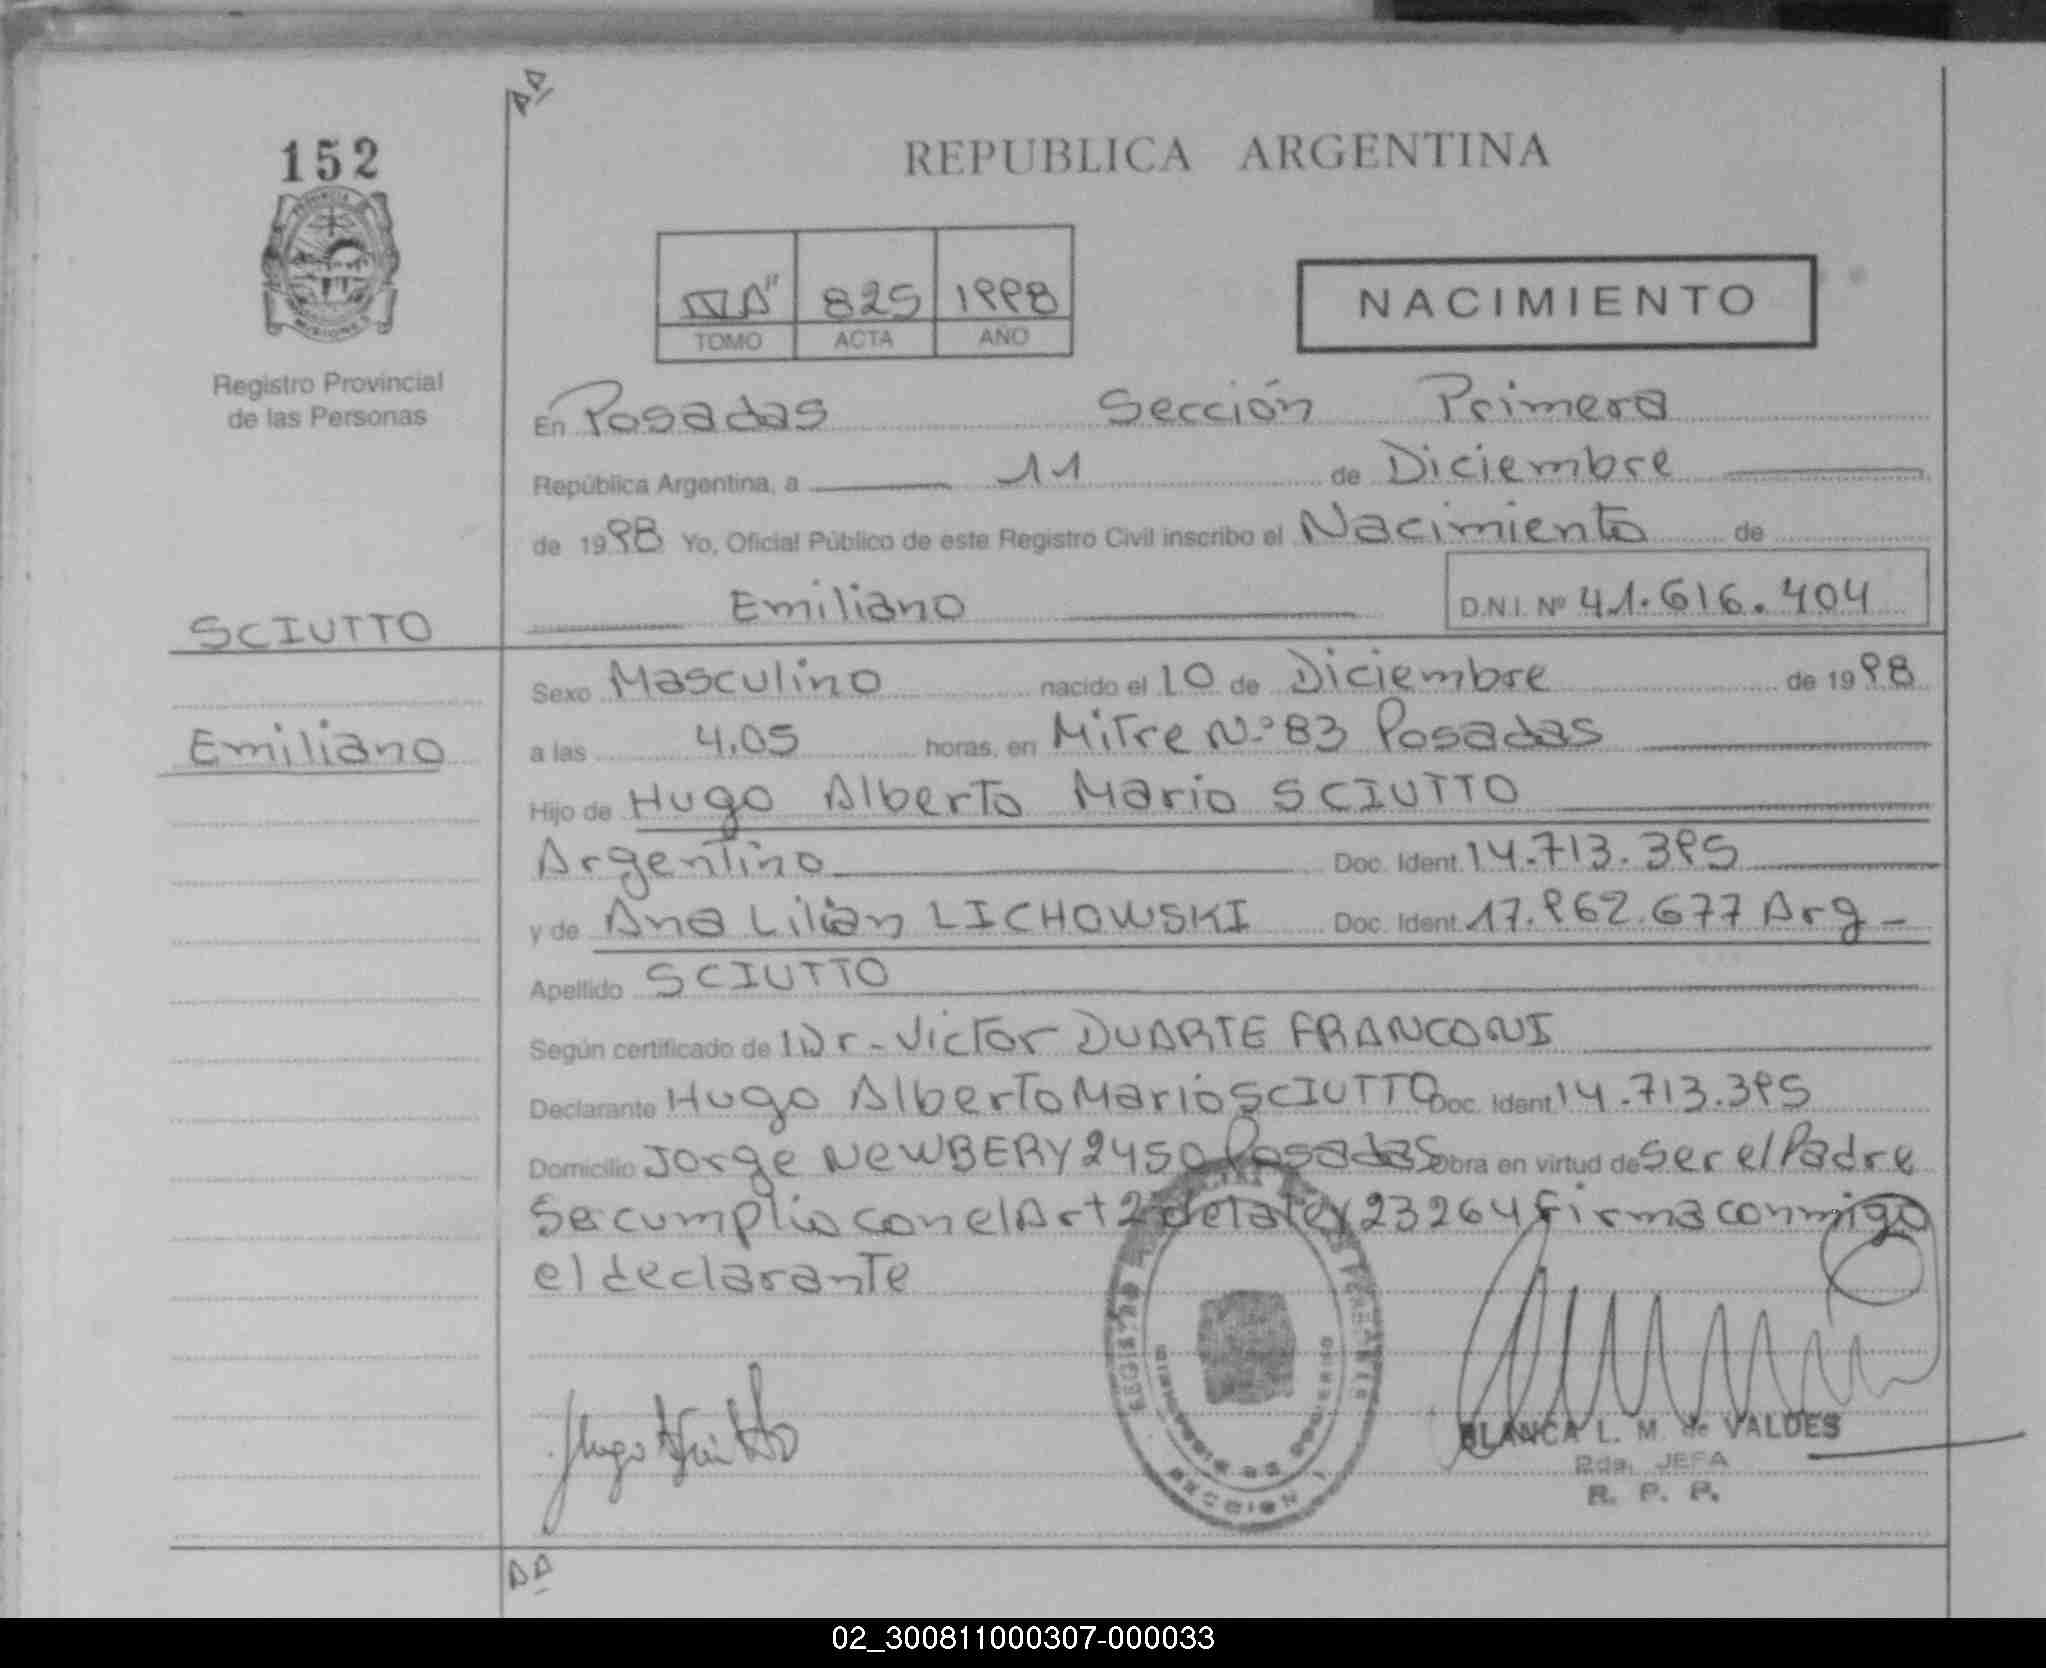 152
REPUBLICA ARGENTINA
825 1998
TOMO ACTA AÑO
NACIMIENTO
Registro Provincial
de las Personas
En Posadas Sección Primera
República Argentina, a 11 de Diciembre
de 1998 Yo, Oficial Público de este Registro Civil inscribo el Nacimiento de
Emiliano D.N.I. Nº 41.616.404
SCIUTTO
Sexo Masculino nacido el 10 de Diciembre de 1998
Emiliano
a las 4.05 horas, en Mitre Nº 83 Posadas
Hijo de Hugo Alberto Mario SCIUTTO
Argentino Doc. Ident. 14.713.395
y de Ana Lilian LICHOWSKI Doc. Ident. 17.962.677 Arg-
Apellido SCIUTTO
Según certificado de Dr- Victor DUARTE FRANCONI
Declarante Hugo Alberto Mario SCIUTTO Doc. Ident 14.713.395
Domicilio Jorge NEWBERY 2450 Posadas Obra en virtud de ser el Padre
Se cumplio con el Art 2 de la ley 23264 firma conmigo
el declarante
BLANCA L. M. de VALDES
2da. JEFA
R. P. P.
SECCION 1
02_300811000307-000033